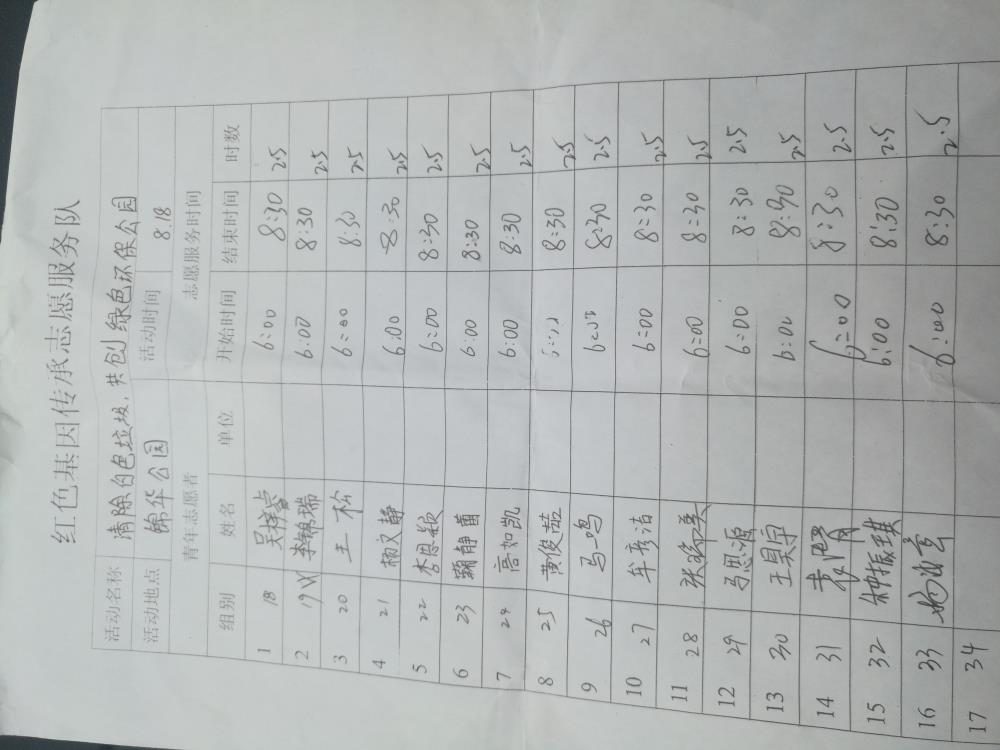 红色基因传承志愿服务队
活动名称 清除白色垃圾,共创绿色环保公园
活动地点 锦华公园 活动时间 8.18
青年志愿者 志愿服务时间
组别 姓名 单位 开始时间 结束时间 时数
1 18 6:00 8:30 2.5
2 19 李锦瑞 6:00 8:30 2.5
3 20 王松 6:00 8:30 2.5
4 21 杨文静 6:00 8:30 2.5
5 22 李思颖 6:00 8:30 2.5
6 23 鞠静茵 6:00 8:30 2.5
7 24 高如凯 6:00 8:30 2.5
8 25 黄俊茹 6:00 8:30 2.5
9 26 马鸣 6:00 8:30 2.5
10 27 牟彦洁 6:00 8:30 2.5
11 28 6:00 8:30 2.5
12 29 马思源 6:00 8:30 2.5
13 30 王昊宇 6:00 8:30 2.5
14 31 6:00 8:30 2.5
15 32 种振琪 6:00 8:30 2.5
16 33 6:00 8:30 2.5
17 34